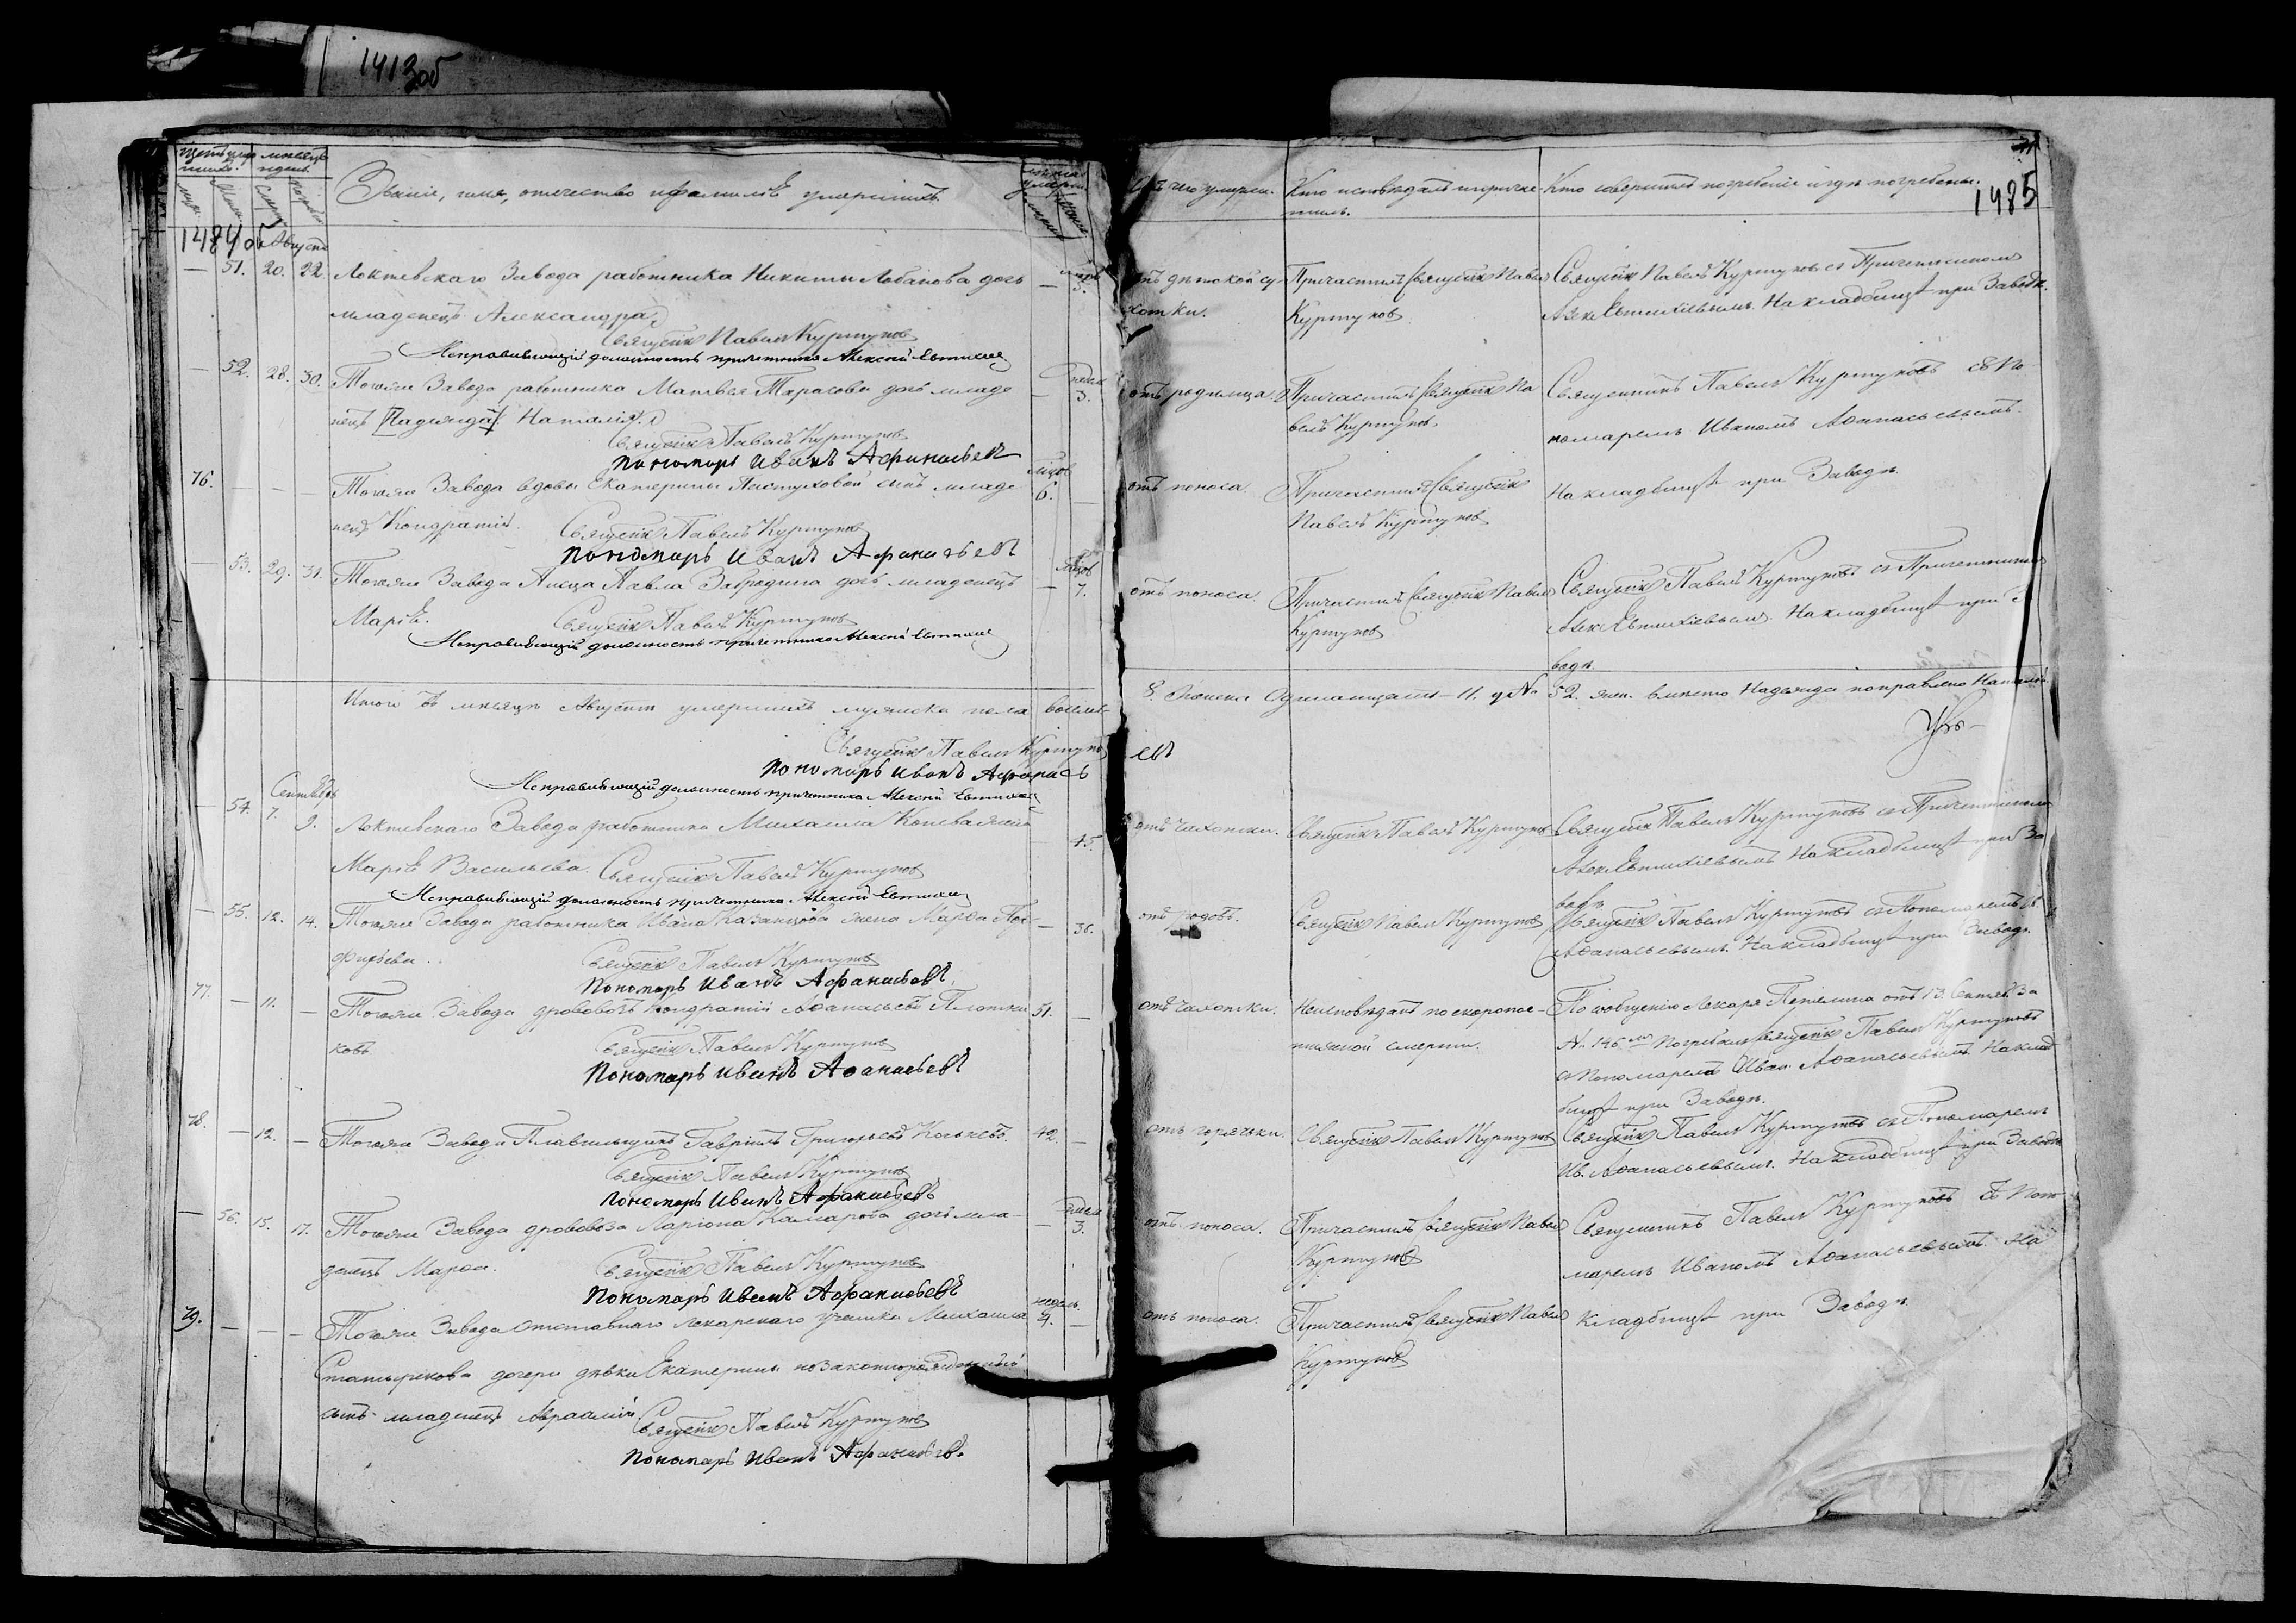 1413об
Счетъ умер
шихъ.
мѣсяцъ
и день.
Званіе, имя, отечество и фамилія умершихъ.
1484 об Августъ
— 51. 20. 22. Локтевскаго Завода работника Никиты Лобанова дочь
младенецъ Александра
Священ. Павелъ Куртуковъ
Исправляющій должность причетника Алексей Евтихіев
— 52. 28. 30. Тогоже Завода работника Матвея Тарасова дочь младе — 3.
нецъ [Надежда] Наталія.
Священ. Павелъ Куртуковъ
Пономарь Иванъ Афанасьев
76. — — — Тогоже Завода вдовы Екатерины сынъ младе 6. —
нецъ Кондратій.
Священ. Павелъ Куртуковъ
Пономарь Иванъ Афанасьевъ
— 53. 29. 31. Тогоже Завода Писца Павла Забродина дочь младенецъ — 7.
Марія.
Священ. Павелъ Куртуковъ
Исправляющій должность причетника Алексей Евтихіев
Итого въ мѣсяцѣ Августѣ умершихъ мужеска пола восемь
Священ. Павелъ Куртуковъ
Пономарь Иванъ Афанась
Исправляющій должность причетника Алексей Евтихіев
Сентябрь
— 54. 7. 9. Локтевскаго Завода работника Михаила жена — 45.
Марія Васильева.
Священ. Павелъ Куртуковъ
Исправляющій должность причетника Алексей Евтихіев
— 55. 12. 14. Тогоже Завода работника Ивана Казанцова жена Марфа Пор —
фирьева.
Священ. Павелъ Куртуковъ
Пономарь Иванъ Афанасьевъ
77. — 11. — Тогоже Завода дрововозъ Кондратій Аѳанасьевъ Плотни 51. —
ковъ
Священ. Павелъ Куртуковъ
Пономарь Иванъ Аѳанасьевъ
78. — 12. — Тогоже Завода Плавильщикъ Гавріилъ Григорьевъ 42. —
Священ. Павелъ Куртуковъ
Пономарь Иванъ Афанасьевъ
— 56. 15. 17. Тогоже Завода дрововоза Ларіона Камарова дочь мла — 3.
денецъ Марфа.
Священ. Павелъ Куртуковъ
Пономарь Иванъ Афанасьевъ
79. — — — Тогоже Завода отставнаго лекарскаго ученика Михаила недѣль. 4. —
дочери дѣвки Екатерины незаконнорожденный
сынъ младенецъ Авраамій
Священ. Павелъ Куртуковъ
Пономарь Иванъ Афанасьевъ.
Отъ чего умерли.
Кто исповѣдалъ и прича-
щалъ.
Кто совершалъ погребеніе и гдѣ погребены.
1485
отъ дѣтской су
хотки.
Причастилъ Священ. Павелъ
Куртуковъ
Священ. Павелъ Куртуковъ съ Причетникомъ
Алек. Евтихіевымъ. На кладбищѣ при Заводѣ.
отъ родимца.
Причастилъ Священ. Па
велъ Куртуковъ
Священникъ Павелъ Куртуковъ съ По
номаремъ Иваномъ Аѳанасьевымъ.
отъ поноса.
Причастилъ Священ.
Павелъ Куртуковъ
На кладбищѣ при Заводѣ.
отъ поноса.
Причастилъ Священ. Павелъ
Куртуковъ
Священ. Павелъ Куртуковъ съ Причетникомъ
Алек. Евтихіевымъ. На кладбищѣ при За
водѣ
8. Женска Одинадцать 11. у № 52. жен. вместо Надежда поправлено Наталія.
евъ
отъ чахотки.
Священ. Павелъ Куртуковъ
Священ. Павелъ Куртуковъ съ Причетникомъ
Алек. Евтихіевымъ На кладбищѣ при За
водѣ.
отъ родовъ.
Священ. Павелъ Куртуковъ
Священ. Павелъ Куртуковъ съ Пономаремъ
Аѳанасьевымъ. На кладбищѣ при Заводѣ.
отъ чахотки.
Неисповѣданъ по скоропос-
тижной смерти.
По сообщенію Лекаря отъ 13. Сентяб. за
№ 146. Погребалъ Священ. Павелъ Куртуковъ
съ Пономаремъ Иван. Аѳанасьевымъ На клад
бищѣ при Заводѣ.
отъ горячки.
Священ. Павелъ Куртуковъ
Священ. Павелъ Куртуковъ съ Пономаремъ
Ив. Аѳанасьевымъ. На кладбищѣ при Заводѣ
отъ поноса.
Причастилъ Священ. Павелъ
Куртуковъ
Священникъ Павелъ Куртуковъ съ Поно
маремъ Иваномъ Аѳанасьевымъ. На
отъ поноса.
Причастилъ Священ. Павелъ
Куртуковъ
кладбищѣ при Заводѣ.